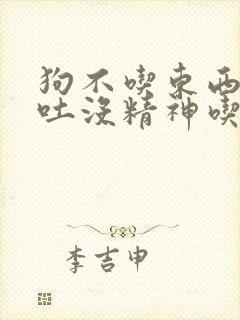 狗不喫東西
吐沒精神喫
李吉申